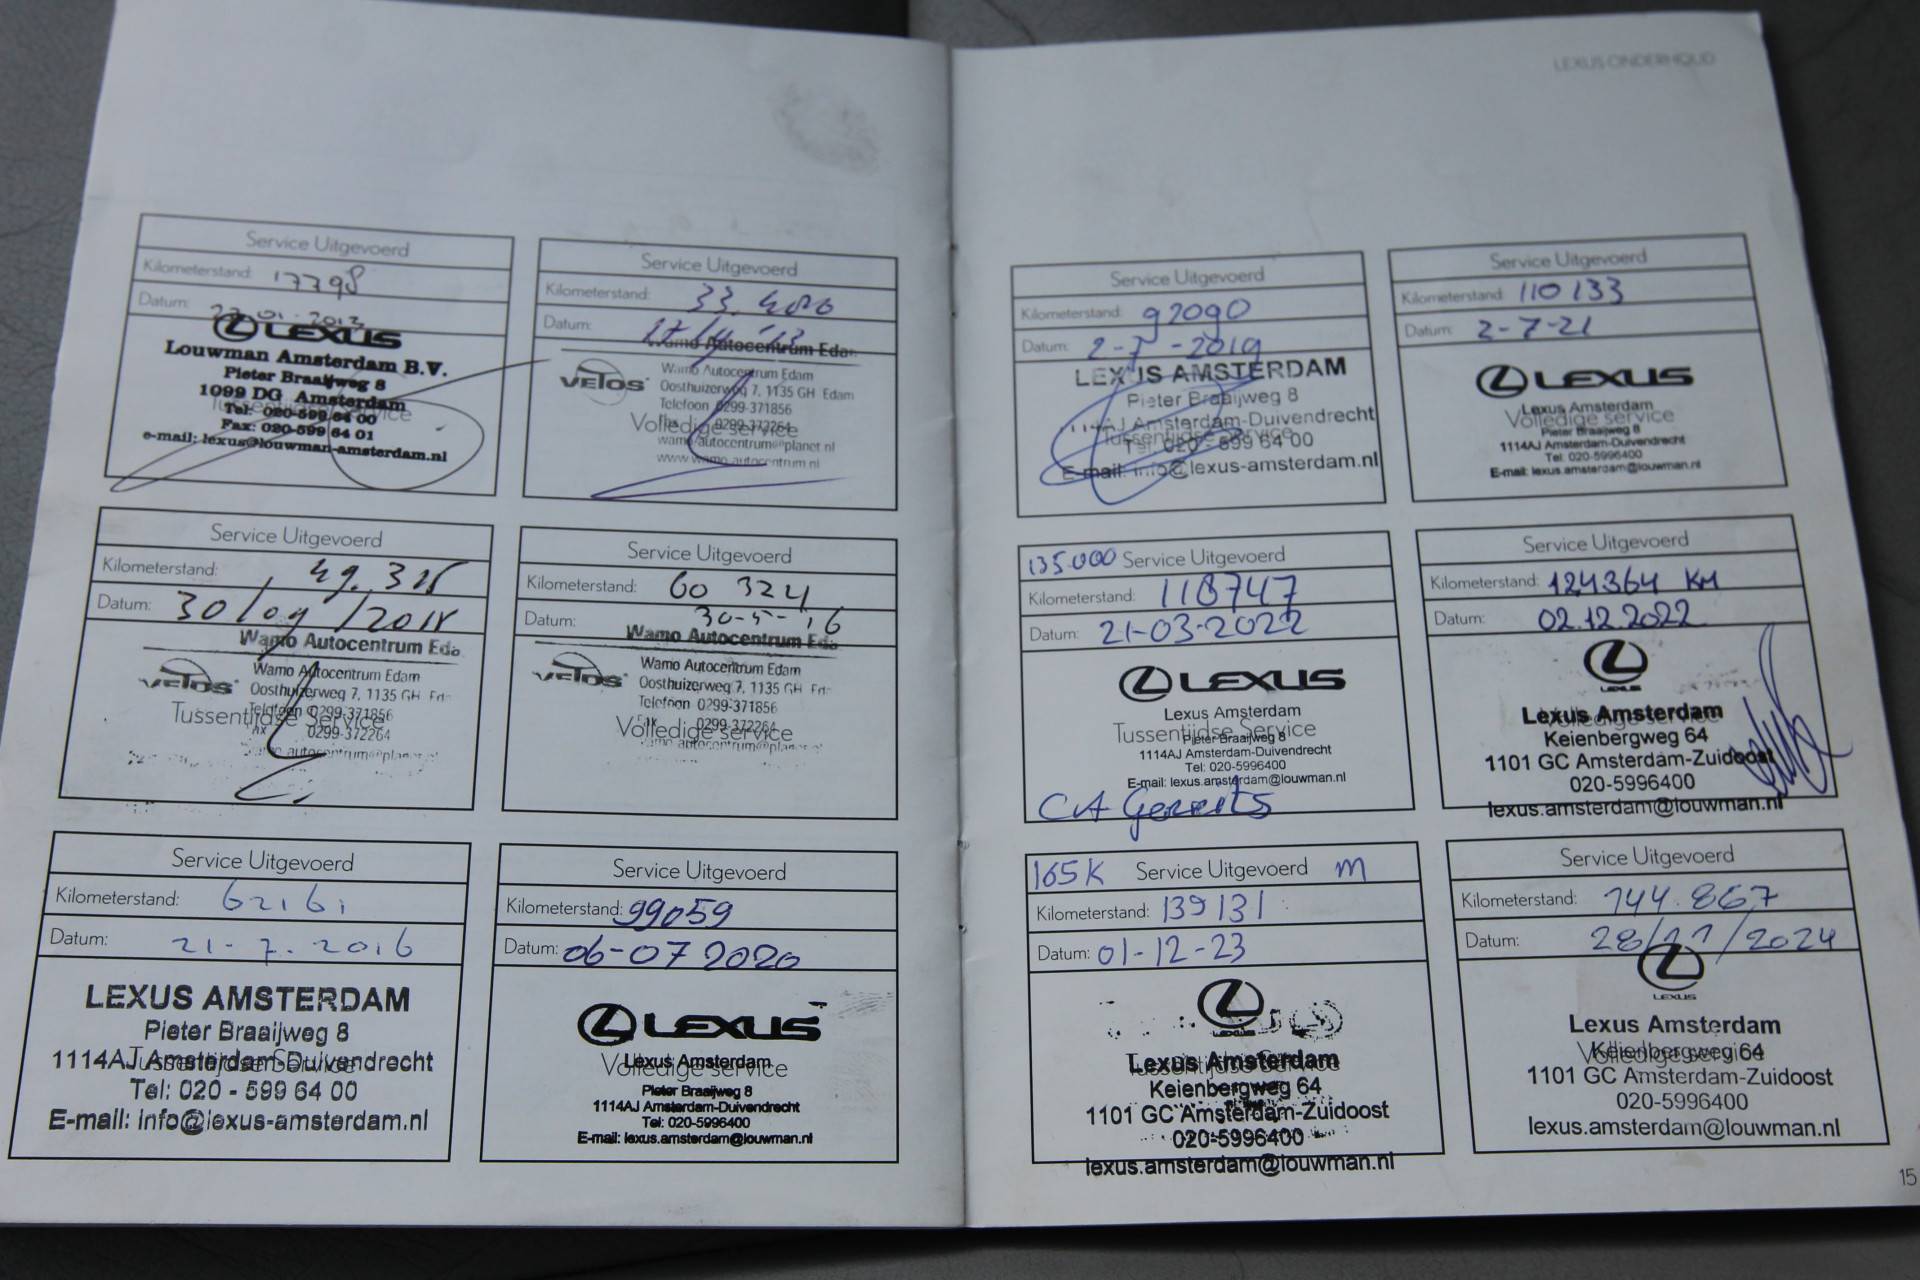 LEXUS ONDERHOUD
Service Uitgevoerd
Kilometerstand: 17798
Datum: 27-01-2013
LEXUS
Louwman Amsterdam B.V.
Pieter Braaijweg 8
1099 DG Amsterdam
Tussentijdse Service
Tel: 020-599 64 00
Fax: 020-599 64 01
e-mail: lexus@louwman-amsterdam.nl
Service Uitgevoerd
Kilometerstand: 33.400
Datum:
Wamo Autocentrum Edam
VETOS
Wamo Autocentrum Edam
Oosthuizerweg 7, 1135 GH Edam
Telefoon 0299-371856
Fax 0299-372264
Volledige service
wamo autocentrum@planet nl
www.wamo autocentrum nl
Service Uitgevoerd
Kilometerstand:
Datum: 30/09/
Wamo Autocentrum Eda
VETOS
Wamo Autocentrum Edam
Oosthuizerweg 7, 1135 GH Ed
Telefoon 0299-371856
Tussentijdse Service
0299-372264
Service Uitgevoerd
Kilometerstand: 60 324
Datum: 30-5-16
Wamo Autocentrum Eda
VETOS
Wamo Autocentrum Edam
Oosthuizerweg 7, 1135 GH Ed
Telefoon 0299-371856
0299-372264
Volledige service
Service Uitgevoerd
Kilometerstand: 62161
Datum: 21-7-2016
LEXUS AMSTERDAM
Pieter Braaijweg 8
1114AJ Amsterdam-Duivendrecht
Tussentijdse Service
Tel: 020 - 599 64 00
E-mail: info@lexus-amsterdam.nl
Service Uitgevoerd
Kilometerstand: 99059
Datum: 06-07 2020
LEXUS
Lexus Amsterdam
Volledige service
Pieter Braaijweg 8
1114AJ Amsterdam-Duivendrecht
Tel: 020-5996400
E-mail: lexus.amsterdam@louwman.nl
Service Uitgevoerd
Kilometerstand: 92090
Datum: 2-7-2019
LEXUS AMSTERDAM
Pieter Braaijweg 8
1114AJ Amsterdam-Duivendrecht
Tussentijdse Service
Tel. 020 - 599 64 00
E-mail: info@lexus-amsterdam.nl
Service Uitgevoerd
Kilometerstand: 110133
Datum: 2-7-21
LEXUS
Lexus Amsterdam
Volledige service
Pieter Braaijweg 8
1114AJ Amsterdam-Duivendrecht
Tel: 020-5996400
E-mail: lexus.amsterdam@louwman.nl
135.000 Service Uitgevoerd
Kilometerstand: 118747
Datum: 21-03-2022
LEXUS
Lexus Amsterdam
Tussentijdse Service
Pieter Braaijweg 8
1114AJ Amsterdam-Duivendrecht
Tel: 020-5996400
E-mail: lexus.amsterdam@louwman.nl
CA Gerrits
Service Uitgevoerd
Kilometerstand: 124364 KM
Datum: 02.12.2022
LEXUS
Lexus Amsterdam
Volledige service
Keienbergweg 64
1101 GC Amsterdam-Zuidoost
020-5996400
lexus.amsterdam@louwman.nl
165K Service Uitgevoerd m
Kilometerstand: 139131
Datum: 01-12-23
LEXUS
Lexus Amsterdam
Tussentijdse Service
Keienbergweg 64
1101 GC Amsterdam-Zuidoost
020-5996400
lexus.amsterdam@louwman.nl
Service Uitgevoerd
Kilometerstand: 144.867
Datum: 28/11/2024
LEXUS
Lexus Amsterdam
Keienbergweg 64
Volledige service
1101 GC Amsterdam-Zuidoost
020-5996400
lexus.amsterdam@louwman.nl
15